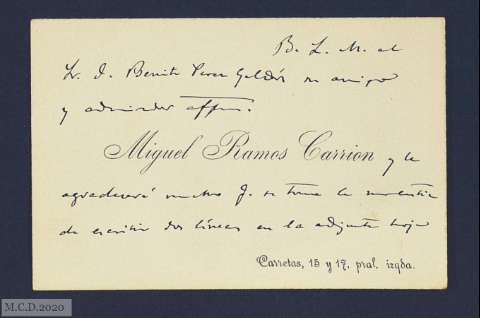 B. L. M. al
Sr. D. Benito Perez Galdós su amigo
y admirador affmo.
Miguel Ramos Carrion y le
agradecerá mucho q. se tome la molestia
de escribir dos líneas en la adjunta hoja
Carretas, 15 y 17, pral. izqda.
M.C.D.2020